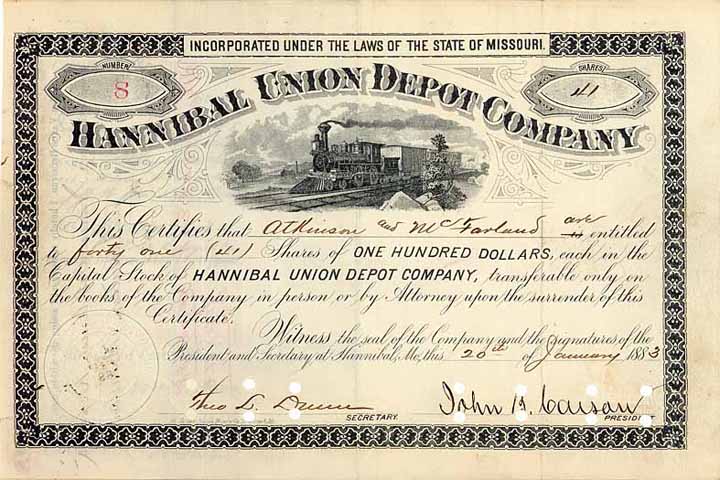 INCORPORATED UNDER THE LAWS OF THE STATE OF MISSOURI.
NUMBER
8
SHARES
41
HANNIBAL UNION DEPOT COMPANY
This Certifies that Atkinson and McFarland are is entitled
to forty one (41) Shares of ONE HUNDRED DOLLARS, each in the
Capital Stock of HANNIBAL UNION DEPOT COMPANY, transferable only on
the books of the Company in person or by Attorney upon the surrender of this
Certificate.
Witness the seal of the Company and the signatures of the
President and Secretary at Hannibal, Mo, this 20th of January 1883
Theo D.
SECRETARY.
John B. Carson
PRESIDENT